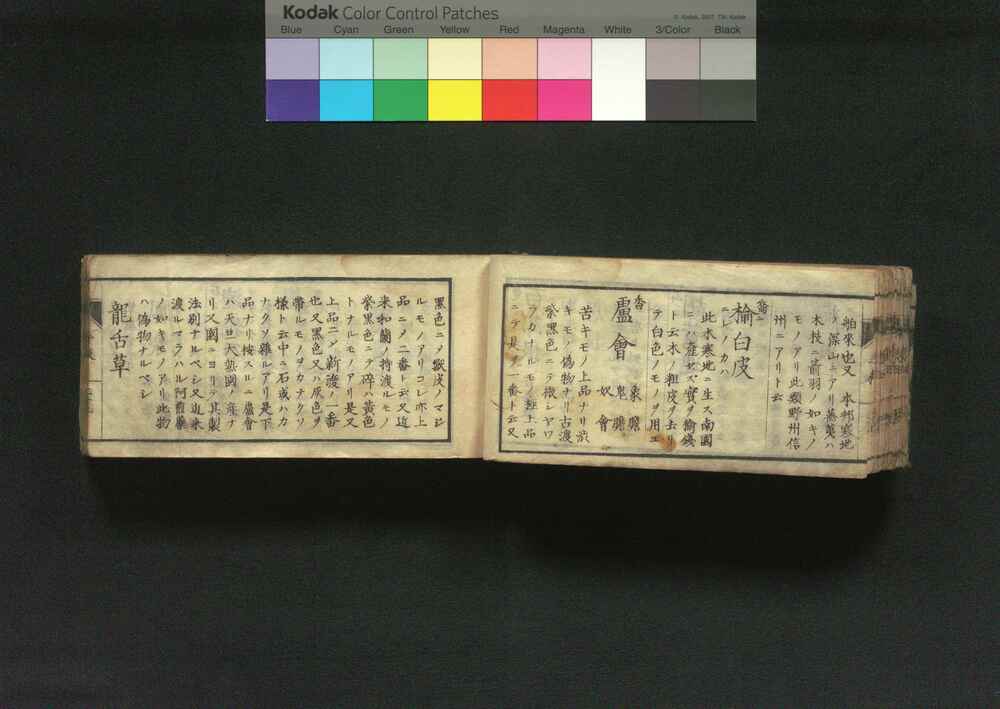 Kodak Color Control Patches
© Kodak, 2007 TM: Kodak
Blue Cyan Green Yellow Red Magenta White 3/Color Black
舶來也又 本邦寒地
深山ニアリ蕪荑ハ
木枝ニ箭羽ノ如キノ
モノアリ此類野州信
州ニアリト云
楡白皮
ニレノカハ
此木寒地ニ生ス南國
ニハ産セズ實ヲ楡錢
ト云木ノ粗皮ヲ去リ
テ白色ノモノヲ用ユ
盧會
象膽
鬼膽
奴會
苦キモノ上品ナリ渋
キモノ偽物ナリ古渡
紫黑色ニテ微シヤワ
ラカナルモノ極上品
ニテ一番ト云又
黑色ニノ獸皮ノマジ
ルモノアリコレ亦上
品ニノ二番ト云又近
来和蘭ノ持渡ルモノ
紫黑色ニテ碎ハ黄色
トナルモノアリ是又
上品ニノ新渡ノ一番
也又黑色又ハ灰色ヲ
帶ルモノヲカナクソ
樣ト云中ニ石或ハカ
ナクソ雜ルアリ是下
品ナリ按スルニ盧會
ハ天竺大熱國ノ産ナ
リ又國ニヨリテ其製
法別ナルベシ又近来
渡ルマラハル阿煎藥
ノ如キモノアリ此物
ハ偽物ナルベシ
龍舌草